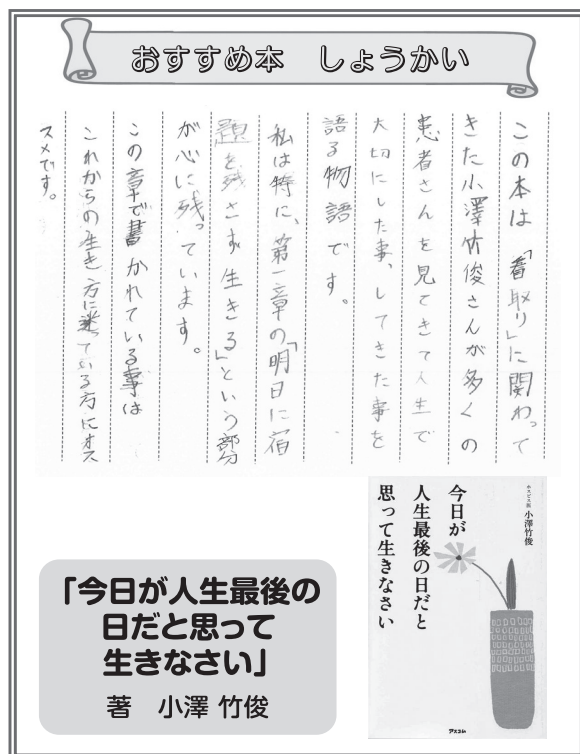 おすすめ本　しょうかい
この本は「看取り」に関わって
きた小澤竹俊さんが多くの
患者さんを見てきて人生で
大切にした事、してきた事を
語る物語です。
私は特に、第一章の「明日に宿
題を残さず生きる」という部分
が心に残っています。
この章で書かれている事は
これからの生き方に迷っている方にオス
スメです。
ホスピス医 小澤竹俊
今日が
人生最後の日だと
思って生きなさい
アスコム
「今日が人生最後の
日だと思って
生きなさい」
著　小澤 竹俊